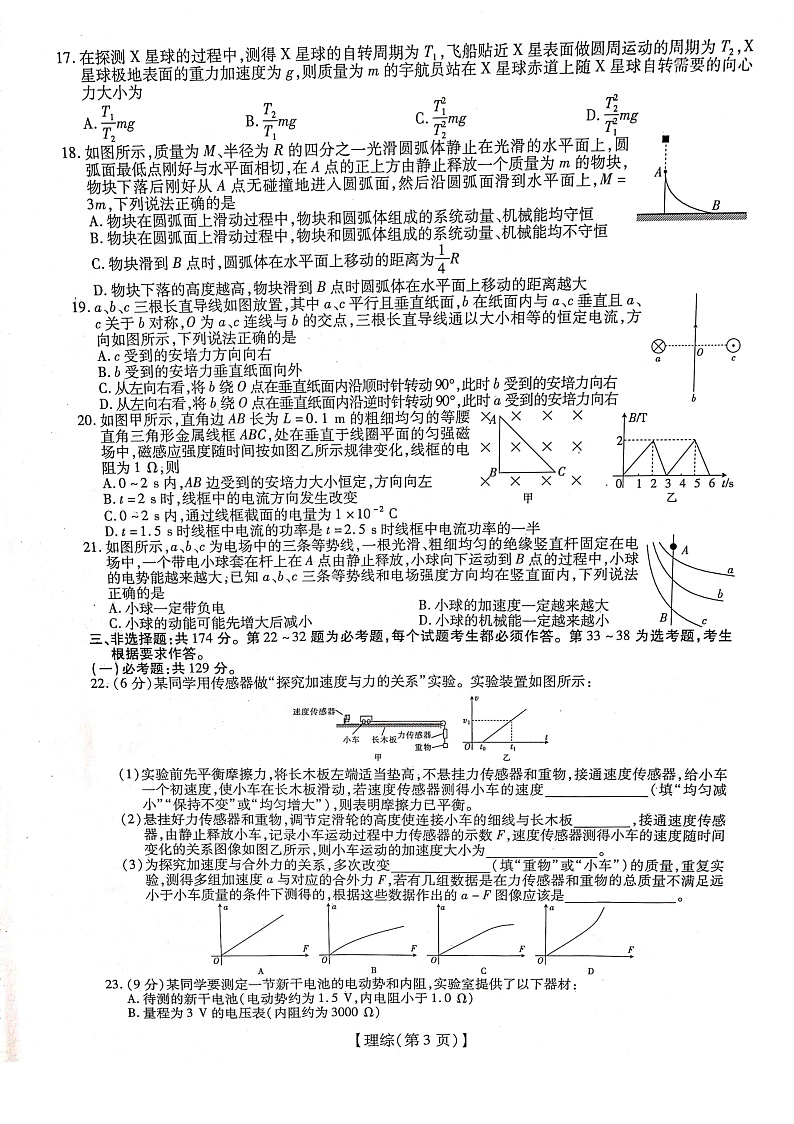 17. 在探测 X 星球的过程中,测得 X 星球的自转周期为 T₁,飞船贴近 X 星表面做圆周运动的周期为 T₂,X
星球极地表面的重力加速度为 g,则质量为 m 的宇航员站在 X 星球赤道上随 X 星球自转需要的向心
力大小为
A. T₁/T₂ mg B. T₂/T₁ mg C. T₁²/T₂² mg D. T₂²/T₁² mg
18. 如图所示,质量为 M、半径为 R 的四分之一光滑圆弧体静止在光滑的水平面上,圆
弧面最低点刚好与水平面相切,在 A 点的正上方由静止释放一个质量为 m 的物块,
物块下落后刚好从 A 点无碰撞地进入圆弧面,然后沿圆弧面滑到水平面上,M =
3m,下列说法正确的是
A
B
A. 物块在圆弧面上滑动过程中,物块和圆弧体组成的系统动量、机械能均守恒
B. 物块在圆弧面上滑动过程中,物块和圆弧体组成的系统动量、机械能均不守恒
C. 物块滑到 B 点时,圆弧体在水平面上移动的距离为 1/4 R
D. 物块下落的高度越高,物块滑到 B 点时圆弧体在水平面上移动的距离越大
19. a、b、c 三根长直导线如图放置,其中 a、c 平行且垂直纸面,b 在纸面内与 a、c 垂直且 a、
c 关于 b 对称,O 为 a、c 连线与 b 的交点,三根长直导线通以大小相等的恒定电流,方
向如图所示,下列说法正确的是
A. c 受到的安培力方向向右
B. b 受到的安培力垂直纸面向外
C. 从左向右看,将 b 绕 O 点在垂直纸面内沿顺时针转动 90°,此时 b 受到的安培力向右
D. 从左向右看,将 b 绕 O 点在垂直纸面内沿逆时针转动 90°,此时 a 受到的安培力向右
a O c
b
20. 如图甲所示,直角边 AB 长为 L = 0.1 m 的粗细均匀的等腰
直角三角形金属线框 ABC,处在垂直于线圈平面的匀强磁
场中,磁感应强度随时间按如图乙所示规律变化,线框的电
阻为 1 Ω;则
A. 0 ~ 2 s 内,AB 边受到的安培力大小恒定,方向向左
B. t = 2 s 时,线框中的电流方向发生改变
C. 0 ~ 2 s 内,通过线框截面的电量为 1×10⁻² C
D. t = 1.5 s 时线框中电流的功率是 t = 2.5 s 时线框中电流功率的一半
A
B C
甲
B/T
2
0 1 2 3 4 5 6 t/s
乙
21. 如图所示,a、b、c 为电场中的三条等势线,一根光滑、粗细均匀的绝缘竖直杆固定在电
场中,一个带电小球套在杆上在 A 点由静止释放,小球向下运动到 B 点的过程中,小球
的电势能越来越大;已知 a、b、c 三条等势线和电场强度方向均在竖直面内,下列说法
正确的是
A. 小球一定带负电 B. 小球的加速度一定越来越大
C. 小球的动能可能先增大后减小 D. 小球的机械能一定越来越小
A
a
b
B
c
三、非选择题:共 174 分。第 22 ~ 32 题为必考题,每个试题考生都必须作答。第 33 ~ 38 为选考题,考生
根据要求作答。
(一)必考题:共 129 分。
22. (6 分)某同学用传感器做“探究加速度与力的关系”实验。实验装置如图所示:
速度传感器
小车 长木板 力传感器
重物
甲
v
v₁
O t₀ t₁ t
乙
(1)实验前先平衡摩擦力,将长木板左端适当垫高,不悬挂力传感器和重物,接通速度传感器,给小车
一个初速度,使小车在长木板滑动,若速度传感器测得小车的速度____________(填“均匀减
小”“保持不变”或“均匀增大”),则表明摩擦力已平衡。
(2)悬挂好力传感器和重物,调节定滑轮的高度使连接小车的细线与长木板________,接通速度传感
器,由静止释放小车,记录小车运动过程中力传感器的示数 F,速度传感器测得小车的速度随时间
变化的关系图像如图乙所示,则小车运动的加速度大小为____________。
(3)为探究加速度与合外力的关系,多次改变____________(填“重物”或“小车”)的质量,重复实
验,测得多组加速度 a 与对应的合外力 F,若有几组数据是在力传感器和重物的总质量不满足远
小于小车质量的条件下测得的,根据这些数据作出的 a - F 图像应该是____________。
a a a a
O F O F O F O F
A B C D
23. (9 分)某同学要测定一节新干电池的电动势和内阻,实验室提供了以下器材:
A. 待测的新干电池(电动势约为 1.5 V,内电阻小于 1.0 Ω)
B. 量程为 3 V 的电压表(内阻约为 3000 Ω)
【理综(第 3 页)】